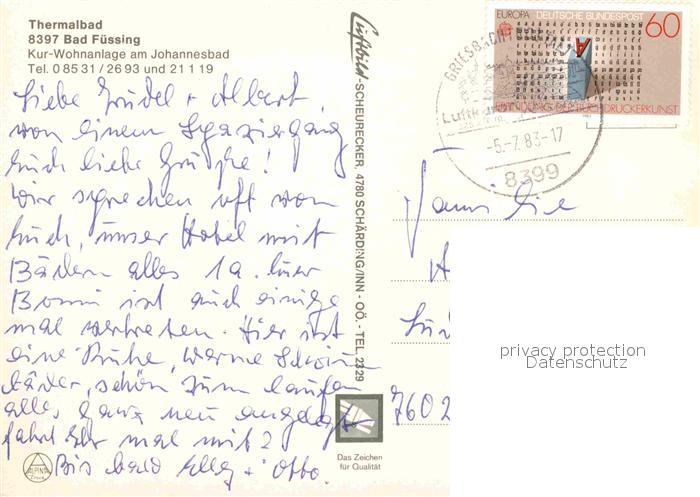 Thermalbad
8397 Bad Füssing
Kur-Wohnanlage am Johannesbad
Tel. 0 85 31 / 26 93 und 2 11 19
Liebe Trudel + Albert,
von einem Spaziergang
Euch liebe Grüße!
Wir sprechen oft von
Euch, unser Hotel mit
Bädern alles 1a. hier
Bonn ist auch einige
mal vertreten. Hier ist
eine Ruhe, warme Schwimm
bäder, schön zum laufen
alles ganz neu angelegt
fahrt Ihr mal mit?
Bis bald Elly + Otto.
ALPINA
Luftbild-SCHEURECKER, 4780 SCHÄRDING/INN - OÖ. - TEL. 2329
Das Zeichen
für Qualität
EUROPA DEUTSCHE BUNDESPOST 60
ERFINDUNG DER BUCHDRUCKERKUNST
GRIESBACH
-5.-7.83-17
8399
Familie
A
7602
privacy protection
Datenschutz